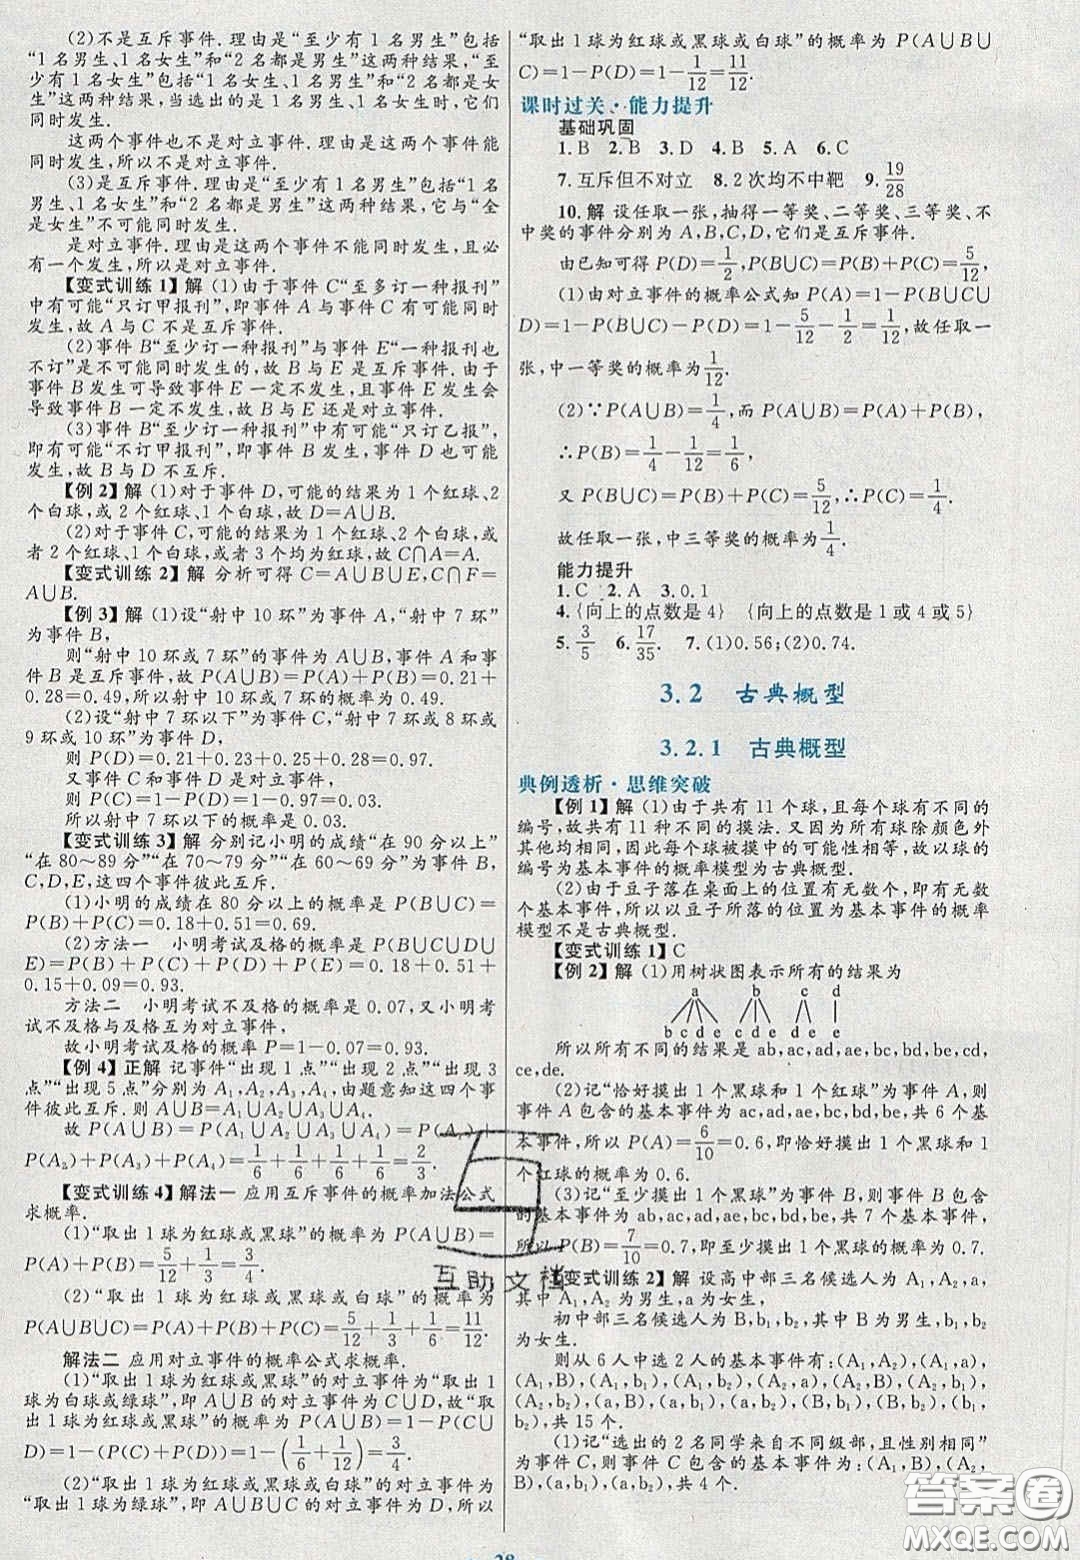 (2)不是互斥事件.理由是“至少有1名男生”包括
“1名男生、1名女生”和“2名都是男生”这两种结果,“至
少有1名女生”包括“1名女生、1名男生”和“2名都是女
生”这两种结果,当选出的是1名男生、1名女生时,它们
同时发生.
这两个事件也不是对立事件.理由是这两个事件能
同时发生,所以不是对立事件.
(3)是互斥事件.理由是“至少有1名男生”包括“1名
男生、1名女生”和“2名都是男生”这两种结果,它与“全
是女生”不可能同时发生.
是对立事件.理由是这两个事件不能同时发生,且必
有一个发生,所以是对立事件.
【变式训练1】解 (1)由于事件C“至多订一种报刊”
中有可能“只订甲报刊”,即事件A与事件C有可能同时
发生,故A与C不是互斥事件.
(2)事件B“至少订一种报刊”与事件E“一种报刊也
不订”是不可能同时发生的,故B与E是互斥事件.由于
事件B发生可导致事件E一定不发生,且事件E发生会
导致事件B一定不发生,故B与E还是对立事件.
(3)事件B“至少订一种报刊”中有可能“只订乙报”,
即有可能“不订甲报刊”,即事件B发生,事件D也可能
发生,故B与D不互斥.
【例2】解 (1)对于事件D,可能的结果为1个红球、2
个白球,或2个红球、1个白球,故D=A∪B.
(2)对于事件C,可能的结果为1个红球、2个白球,或
者2个红球、1个白球,或者3个均为红球,故C∩A=A.
【变式训练2】解 分析可得C=A∪B∪E,C∩F=
A∪B.
【例3】解 (1)设“射中10环”为事件A,“射中7环”
为事件B,
则“射中10环或7环”的事件为A∪B,事件A和事
件B是互斥事件,故P(A∪B)=P(A)+P(B)=0.21+
0.28=0.49,所以射中10环或7环的概率为0.49.
(2)设“射中7环以下”为事件C,“射中7环或8环或
9环或10环”为事件D,
则P(D)=0.21+0.23+0.25+0.28=0.97.
又事件C和事件D是对立事件,
则P(C)=1-P(D)=1-0.97=0.03.
所以射中7环以下的概率为0.03.
【变式训练3】解 分别记小明的成绩“在90分以上”
“在80~89分”“在70~79分”“在60~69分”为事件B,
C,D,E,这四个事件彼此互斥.
(1)小明的成绩在80分以上的概率是P(B∪C)=
P(B)+P(C)=0.18+0.51=0.69.
(2)方法一 小明考试及格的概率是P(B∪C∪D∪
E)=P(B)+P(C)+P(D)+P(E)=0.18+0.51+0.15+
0.09=0.93.
方法二 小明考试不及格的概率是0.07,又小明考
试不及格与及格互为对立事件,
故小明考试及格的概率P=1-0.07=0.93.
【例4】正解 记事件“出现1点”“出现2点”“出现3
点”“出现5点”分别为A₁,A₂,A₃,A₄,由题意知这四个事
件彼此互斥.则A∪B=A₁∪A₂∪A₃∪A₄.
故P(A∪B)=P(A₁∪A₂∪A₃∪A₄)=P(A₁)+
P(A₂)+P(A₃)+P(A₄)=1/6+1/6+1/6+1/6=2/3.
【变式训练4】解法一 应用互斥事件的概率加法公式
求概率.
(1)“取出1球为红球或黑球”的概率为P(A∪B)=
P(A)+P(B)=5/12+1/3=3/4.
(2)“取出1球为红球或黑球或白球”的概率为
P(A∪B∪C)=P(A)+P(B)+P(C)=5/12+1/3+1/6=11/12.
解法二 应用对立事件的概率公式求概率.
(1)“取出1球为红球或黑球”的对立事件为“取出1
球为白球或绿球”,即A∪B的对立事件为C∪D,故“取
出1球为红球或黑球”的概率为P(A∪B)=1-P(C∪
D)=1-(P(C)+P(D))=1-(1/6+1/12)=3/4.
(2)“取出1球为红球或黑球或白球”的对立事件为
“取出1球为绿球”,即A∪B∪C的对立事件为D,所以
“取出1球为红球或黑球或白球”的概率为P(A∪B∪
C)=1-P(D)=1-1/12=11/12.
课时过关·能力提升
基础巩固
1.B 2.B 3.D 4.B 5.A 6.C
7.互斥但不对立 8.2次均不中靶 9.19/28
10.解 设任取一张,抽得一等奖、二等奖、三等奖、不
中奖的事件分别为A,B,C,D,它们是互斥事件.
由已知可得P(D)=1/2,P(B∪C)=5/12,
(1)由对立事件的概率公式知P(A)=1-P(B∪C∪
D)=1-P(B∪C)-P(D)=1-5/12-1/2=1/12,故任取一
张,中一等奖的概率为1/12.
(2)∵P(A∪B)=1/4,而P(A∪B)=P(A)+P(B),
∴P(B)=1/4-1/12=1/6,
又P(B∪C)=P(B)+P(C)=5/12,∴P(C)=1/4.
故任取一张,中三等奖的概率为1/4.
能力提升
1.C 2.A 3.0.1
4.{向上的点数是4} {向上的点数是1或4或5}
5.3/5 6.17/35 7.(1)0.56;(2)0.74.
3.2 古典概型
3.2.1 古典概型
典例透析·思维突破
【例1】解 (1)由于共有11个球,且每个球有不同的
编号,故共有11种不同的摸法.又因为所有球除颜色外
其他均相同,因此每个球被摸中的可能性相等,故以球的
编号为基本事件的概率模型为古典概型.
(2)由于豆子落在桌面上的位置有无数个,即有无数
个基本事件,所以以豆子所落的位置为基本事件的概率
模型不是古典概型.
【变式训练1】C
【例2】解 (1)用树状图表示所有的结果为
a b c d
b c d e c d e d e e
所以所有不同的结果是ab,ac,ad,ae,bc,bd,be,cd,
ce,de.
(2)记“恰好摸出1个黑球和1个红球”为事件A,则
事件A包含的基本事件为ac,ad,ae,bc,bd,be,共6个基
本事件,所以P(A)=6/10=0.6,即恰好摸出1个黑球和1
个红球的概率为0.6.
(3)记“至少摸出1个黑球”为事件B,则事件B包含
的基本事件为ab,ac,ad,ae,bc,bd,be,共7个基本事件,
所以P(B)=7/10=0.7,即至少摸出1个黑球的概率为0.7.
【变式训练2】解 设高中部三名候选人为A₁,A₂,a,
其中A₁,A₂为男生,a为女生,
初中部三名候选人为B,b₁,b₂,其中B为男生,b₁,b₂
为女生.
则从6人中选2人的基本事件有:(A₁,A₂),(A₁,a),
(A₁,B),(A₁,b₁),(A₁,b₂),(A₂,a),(A₂,B),(A₂,b₁),
(A₂,b₂),(a,B),(a,b₁),(a,b₂),(B,b₁),(B,b₂),(b₁,
b₂),共15个.
(1)记“选出的2名同学来自不同级部,且性别相同”
为事件C,则事件C包含的基本事件为:(A₁,B),(A₂,
B),(a,b₁),(a,b₂),共4个.
互助文档
答案圈
MXQE.COM
28